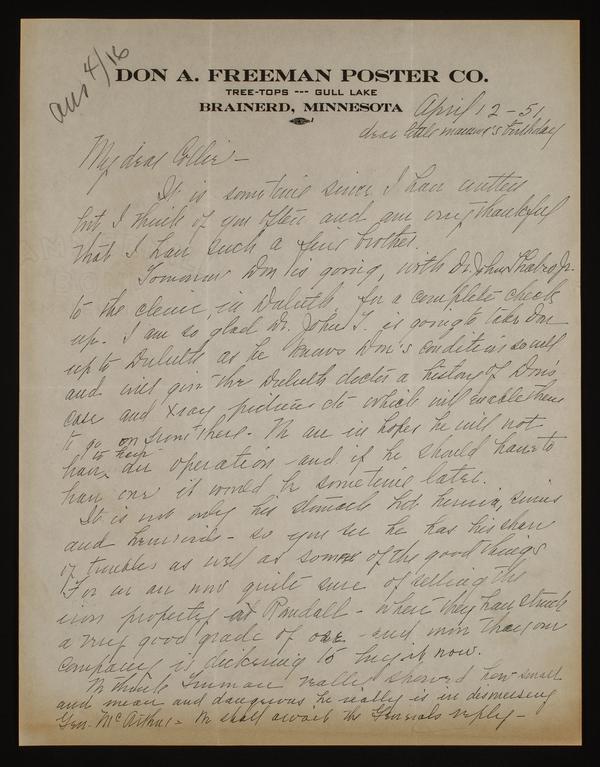 ans 4/16
DON A. FREEMAN POSTER CO.
TREE-TOPS --- GULL LAKE
BRAINERD, MINNESOTA
April 12-51
dear little mamma's birthday
My dear Collie-
It is sometime since I have written
but I think of you often and am very thankful
that I have such a fine brother.
Tomorrow Don is going, with Dr. John Jr.
to the clinic, in Duluth, for a complete check
up. I am so glad Dr. John T. is going to take Don
up to Duluth as he knows Don's condition so well
and will give the Duluth doctor a history of Don's
case and Xray pictures etc which will enable them
to go on from there. We are in hopes he will not
have to have an operation - and if he should have to
have one it would be sometime later.
It is not only his stomach but hernia, sinus
and hemroids - so you see he has his share
of troubles as well as some of the good things
For we are now quite sure of selling the
iron property at Randall - where they have struck
a very good grade of ore - and more than one
company is dickering to buy it now.
We think Truman really showed how small
and mean and dangerous he really is in dismissing
Gen. McArthur - We shall await the Generals reply -